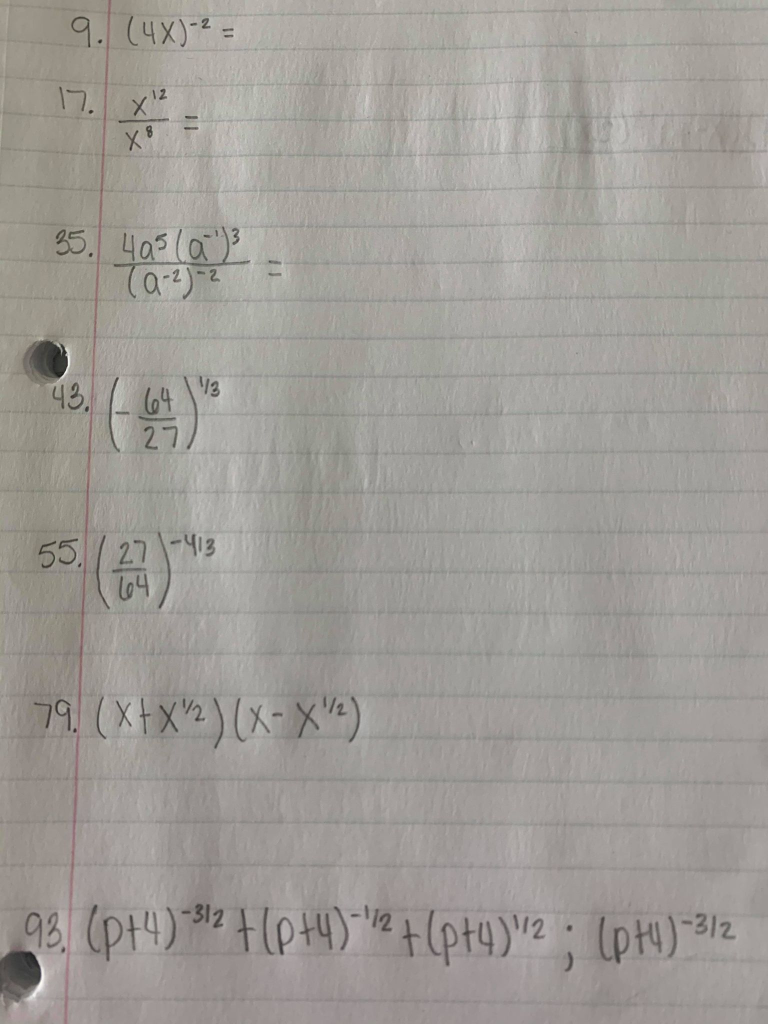 9. (4X)⁻² =
17. x¹²/x⁸ =
35. 4a⁵(a⁻¹)³/(a⁻²)⁻² =
43. (-64/27)^1/3
55. (27/64)^-4/3
79. (x+x^1/2)(x-x^1/2)
93. (p+4)^-3/2 + (p+4)^-1/2 + (p+4)^1/2 ; (p+4)^-3/2